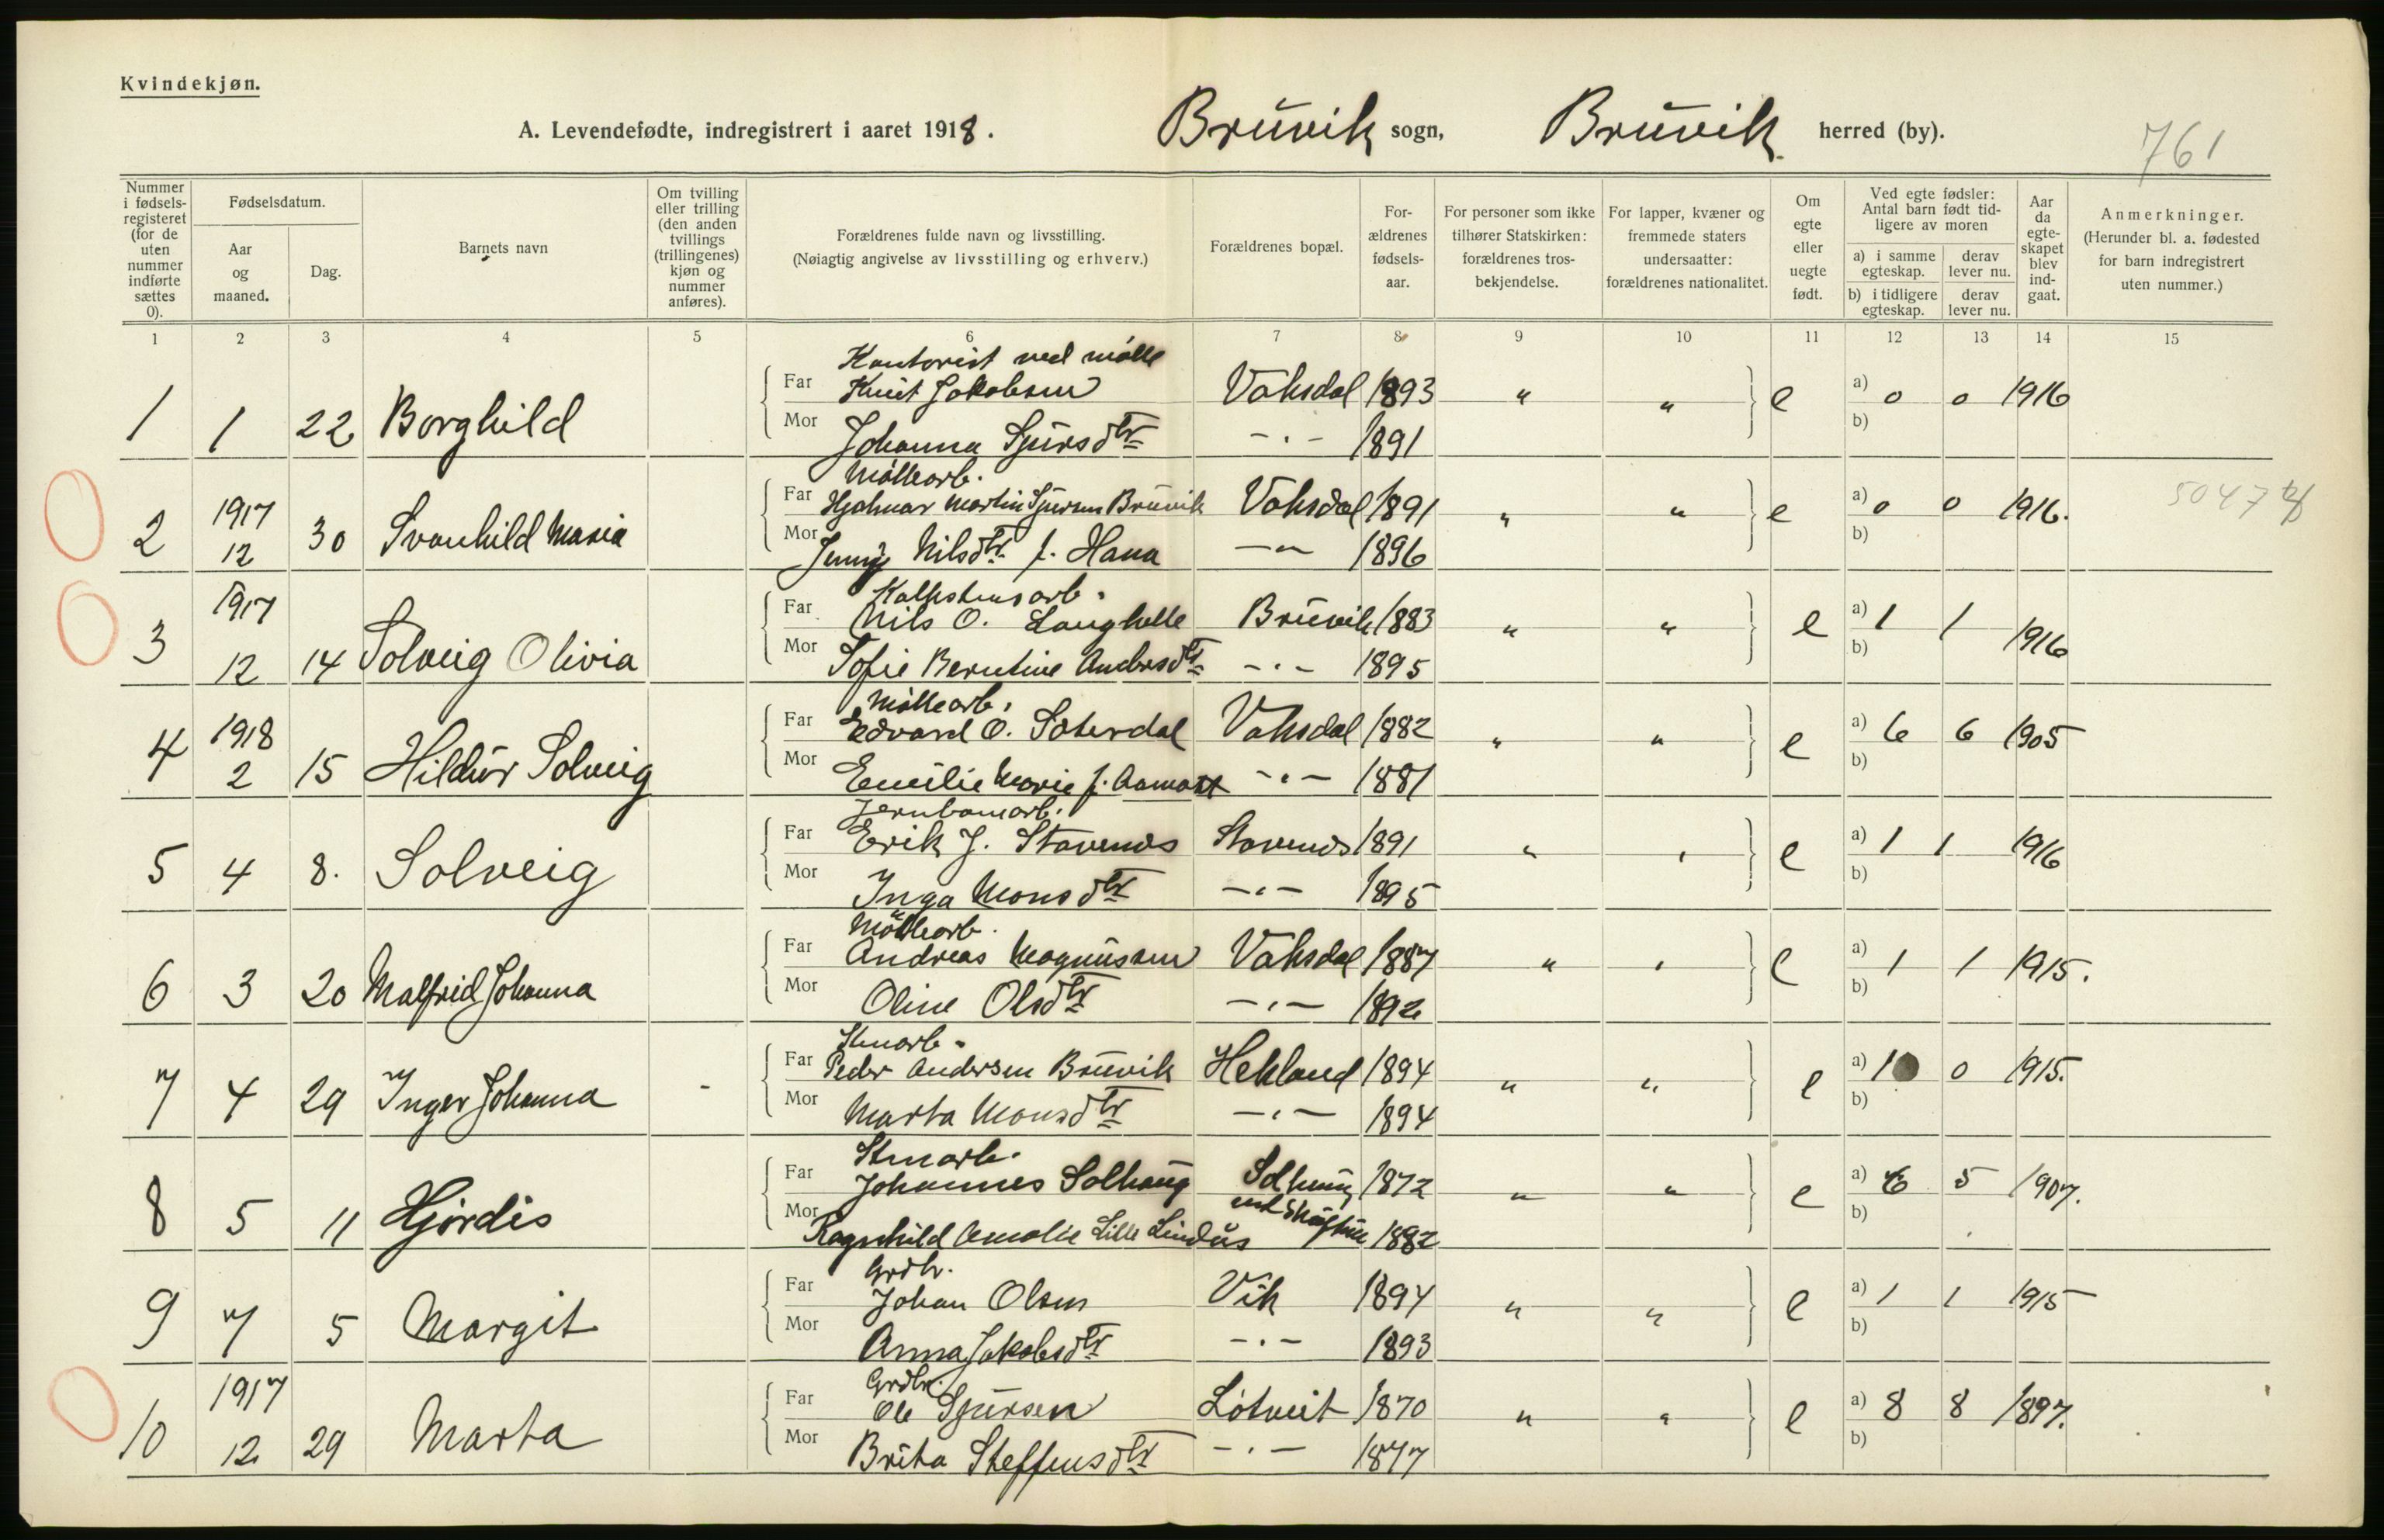 Kvindekjøn.
A. Levendefødte, indregistrert i aaret 1918. Brüvik sogn, Brüvik herred (by).
761
Nummer i fødselsregisteret (for de uten nummer indførte sættes 0).
Fødselsdatum.
Aar og maaned.
Dag.
Barnets navn
Om tvilling eller trilling (den anden tvillings (trillingenes) kjøn og nummer anføres).
Forældrenes fulde navn og livsstilling.
(Nøiagtig angivelse av livsstilling og erhverv.)
Forældrenes bopæl.
Forældrenes fødselsaar.
For personer som ikke tilhører Statskirken: forældrenes trosbekjendelse.
For lapper, kvæner og fremmede staters undersaatter: forældrenes nationalitet.
Om egte eller uegte født.
Ved egte fødsler: Antal barn født tidligere av moren
a) i samme egteskap. derav lever nu.
b) i tidligere egteskap. derav lever nu.
Aar da egteskapet blev indgaat.
Anmerkninger.
(Herunder bl. a. fødested for barn indregistrert uten nummer.)
1 2 3 4 5 6 7 8 9 10 11 12 13 14 15
Kontorist ved mölle
1 1 22 Borghild Far Knut Jakobsen Vaksdal 1893 " " e a) 0 0 1916
Mor Johanna Sjursdtr - " - 1891 b)
Möllearb.
2 1917 12 30 Svanhild Maria Far Hjalmar Martin Sjursen Brüvik Vaksdal 1891 " " e a) 0 0 1916. 50474
Mor Jenny Nilsdtr f. Hana - " - 1896 b)
Kalkstensarb.
3 1917 12 14 Solveig Olivia Far Nils O. Langhelle Brüvik 1883 " " e a) 1 1 1916
Mor Sofie Berntine Andersdtr - " - 1895 b)
Möllearb.
4 1918 2 15 Hildür Solveig Far Edvard O. Sæterdal Vaksdal 1882 " " e a) 6 6 1905
Mor Emilie Marie f. Aamodt - " - 1881 b)
Jernbanearb.
5 4 8. Solveig Far Erik J. Stavenes Stavenes 1891 " " e a) 1 1 1916
Mor Inga Monsdtr - " - 1895 b)
Möllearb.
6 3 20 Malfrid Johanna Far Andreas Magnüssen Vaksdal 1887 " " e a) 1 1 1915.
Mor Oline Olsdtr - " - 1892 b)
Stenarb.
7 4 29 Inger Johanna - Far Peder Andersen Brüvik Hekland 1894 " " e a) 1 0 1915.
Mor Marta Monsdtr - " - 1894 b)
Stenarb.
8 5 11 Hjördis Far Johannes Solhaüg Solhaüg 1872 " " e a) 6 5 1907.
Mor Ragnhild Amalie Lille Lindås ved 1882 b)
Grdbr.
9 7 5 Margit Far Johan Olsen Vik 1894 " " e a) 1 1 1915
Mor Anna Jakobsdtr - " - 1893 b)
Grdbr.
10 1917 12 29 Marta Far Ole Sjürsen Lötveit 1870 " " e a) 8 8 1897.
Mor Brita Steffensdtr - " - 1877 b)